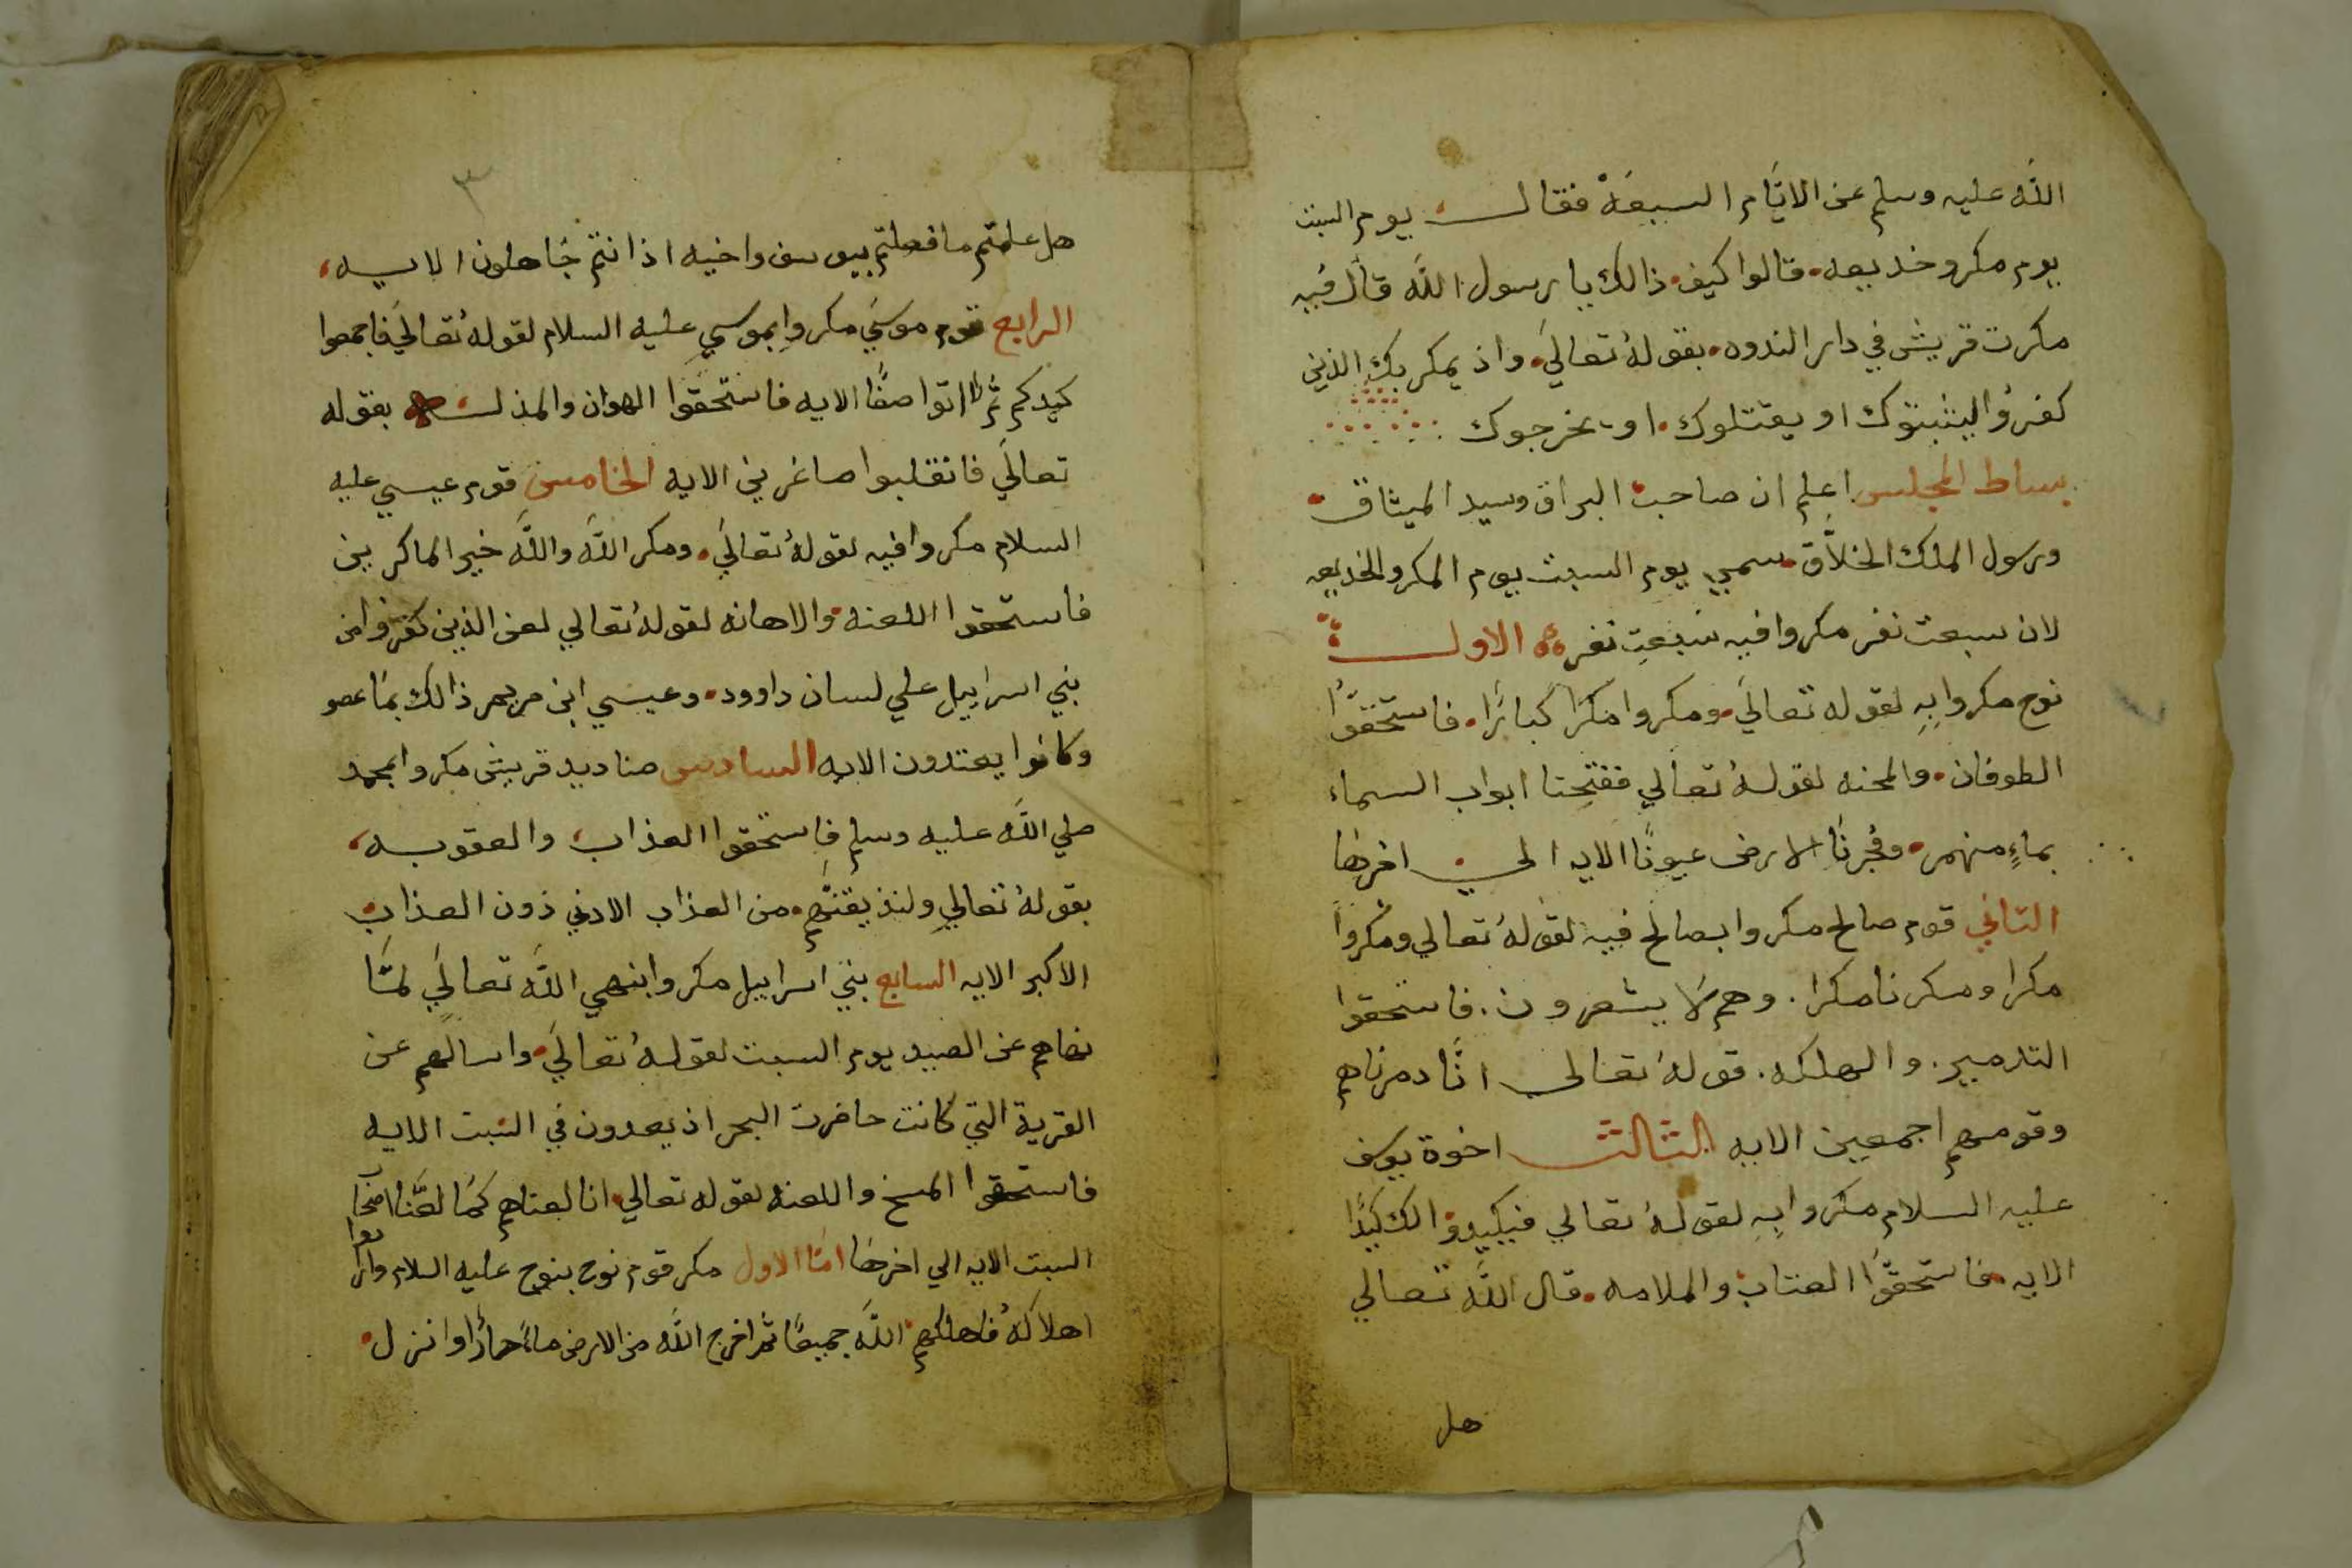 الله عليه وسلم عن الايَّام السبعَة فقال يوم السبت
يوم مكر وخديعه. قالوا كيف ذالك يا رسول الله قال فيه
مكرت قريش في دار الندوه. بقولهُ تعاليَ. واذ يمكر بك الذين
كفرُوا ليثبتوك او يقتلوك. او يخرجوك
بساط المجلس اعلم ان صاحب البراق وسيد الميثاق
ورسول الملك الخلاَّق سمي يوم السبت يوم المكر والخديعه
لان سبعت نفر مكروا فيه سَبعتِ نفر الاول
نوح مكروا بِهِ لقوله تعاليَ ومكروا مَكرًا كبارًا. فاستحقوُّا
الطوفان. والمحنه لقولهُ تعالي ففتحنا ابواب السماء
بماءٍ منهمر. وفُجرنَا الارض عيونًا الايه الي اخرهَا
التاني قوم صالح مكروا بصالح فيه لقولهُ تعالي ومكرواْ
مكرا ومكرنا مكرا. وهم لَا يشعرون. فاستحقوا
التدمير. والهلكه. قولهُ تعالى انَّا دمرناهم
وقومهم اجمعين الايه الثالث اخوة يوسف
عليه السلام مكروا بِهِ لقولهُ تعالي فيكيدوا لك كيدًا
الايه. فاستحقوَّا العتاب والملامه. قال اللَّه تعالي
هل
٣
هل علمتم ما فعلتم بيوسف واخيه اذ انتم جَاهلون الايه
الرابع قوم موسَي مكروا بموسي عليه السلام لقولهُ تعاليَ فاجمعوا
كيدكم ثم اتوا صفًّا الايه فاستحقوا الهوان والمذله بقوله
تعاليَ فانقلبوا صاغرين الايه الخامس قوم عيسي عليه
السلام مكروا فيه لقولهُ تعاليَ. ومكر اللَّه واللَّه خير الماكرين
فاستحقوا اللعنه والاهانه لقولهُ تعالي لعن الذين كفروا من
بني اسراييل علي لسان داوود. وعيسي ابن مريم ذالك بمَا عصو
وكانوا يعتدون الايه السادس صناديد قريش مكروا بمحمد
صلي اللَّه عليه وسلم فاستحقوا العذاب والعقوبه
بقولهُ تعالي ولنذيقنَّهم. من العذاب الادني دون العذاب
الاكبر الايه السابع بنيَ اسراييل مكروا بنهي اللَّه تعاليَ لمَّا
نهاهم عن الصيد يوم السبت لقولهُ تعاليَ. واسالهم عن
القرية التي كانت حاضرت البحر اذ يعدون في السَبت الايه
فاستحقوا المسخ واللعنه لقوله تعالي. انا لعناهم كمَا لعَنَّا اصحاب
السبت الايه الي اخرهَا امَّا الاول مكر قوم نوح بنوح عليه السلام وارادوا
اهلاكهُ فاهلكهم اللَّه جميعًا ثم اخرج اللَّه من الارض ماءً حارًا وانزل